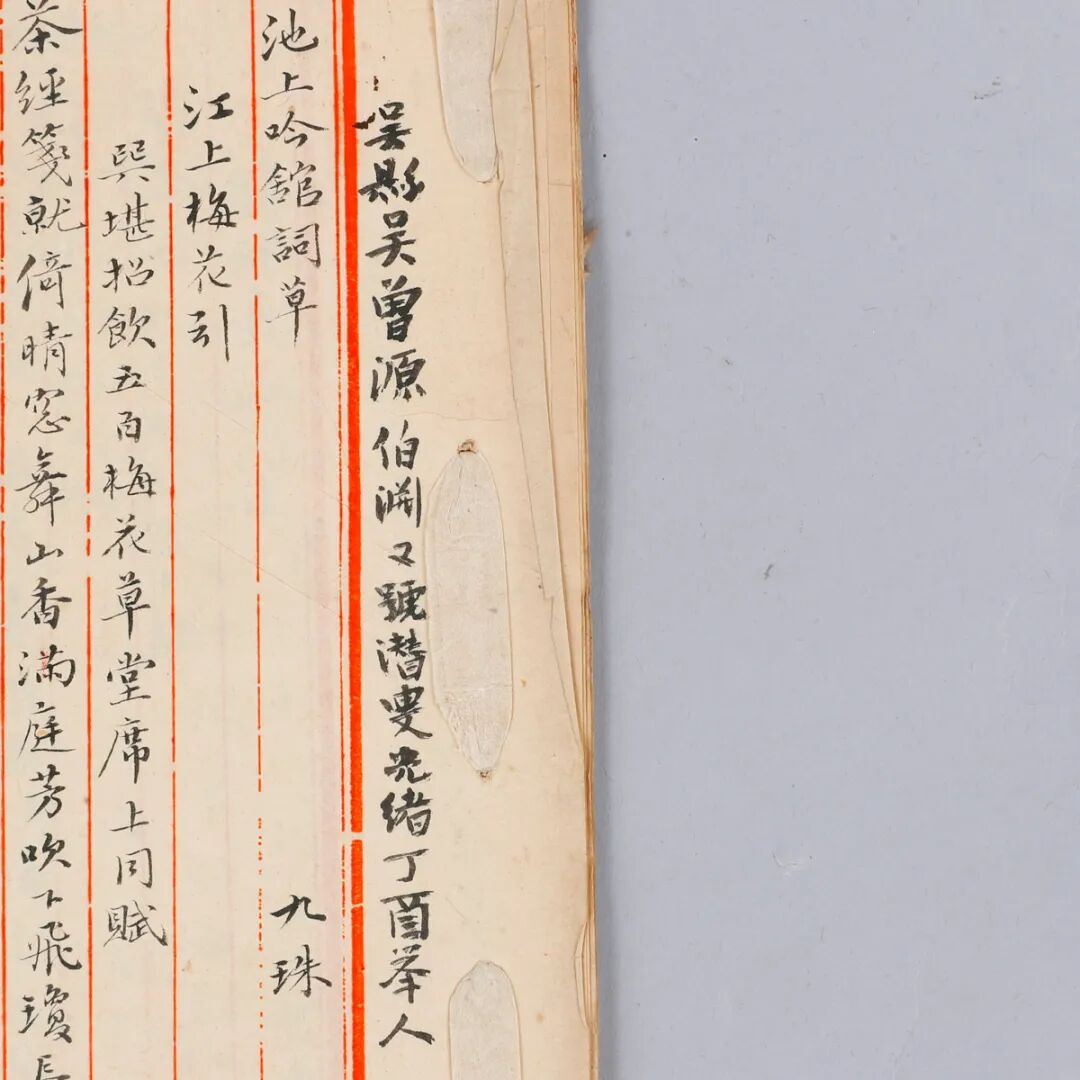 吳縣吳曾源伯淵又號潛叟光緒丁酉举人
池上吟館詞草 九珠
江上梅花引
巽堪招飲五百梅花草堂席上同賦
茶經箋就倚晴窓舞山香滿庭芳吹下飛瓊